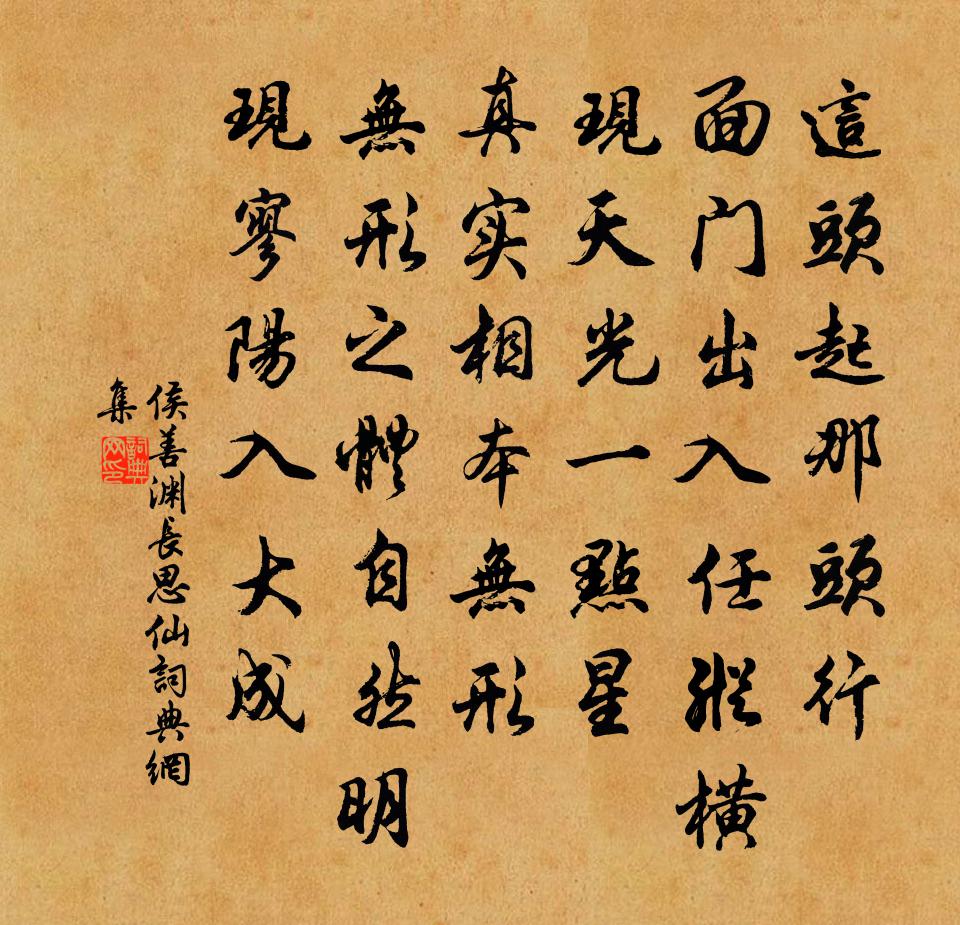 這頭起那頭行
面门出入任縱橫
現天光一點星
真实相本無形
無形之體自然明
現寥陽入大成
侯善渊長思仙詞典網
集
詞典網印